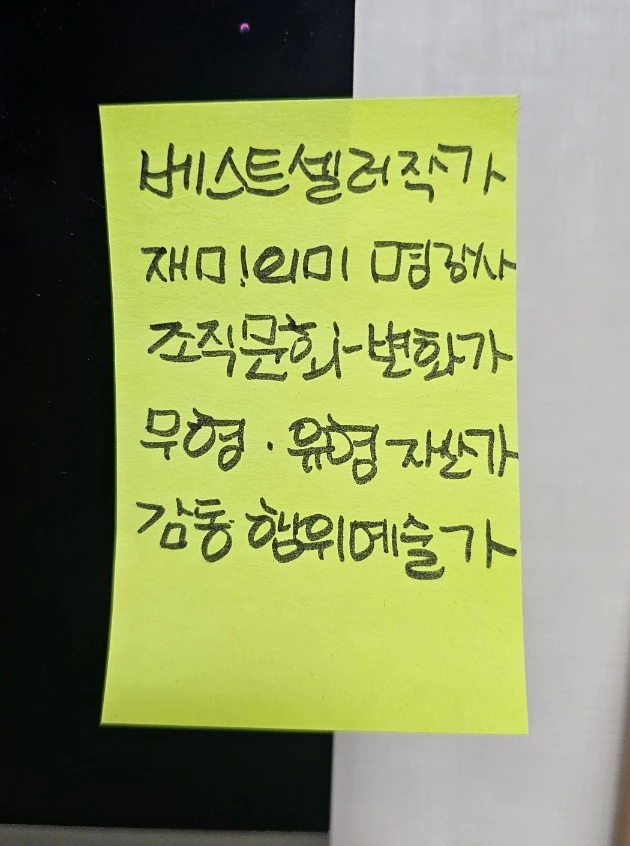 베스트셀러작가
재미!의미 명강사
조직문화-변화가
무형·유형 자산가
감동 행위예술가